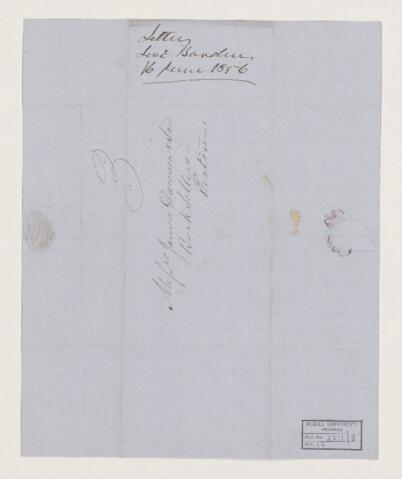 Letter
Borden
16 June 1856
Messrs James Dawson & Son
Book Sellers
Pictou
McGILL UNIVERSITY
ARCHIVES
ACC. NO.
REF. 17